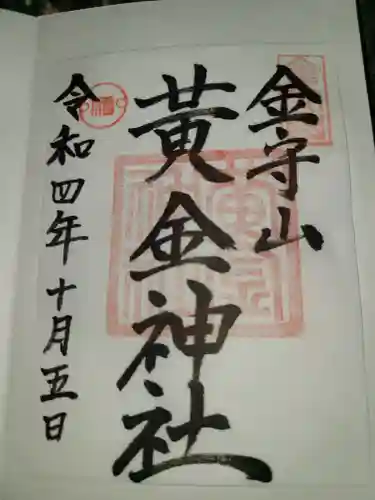 金守山
黃金神社
令和四年十月五日